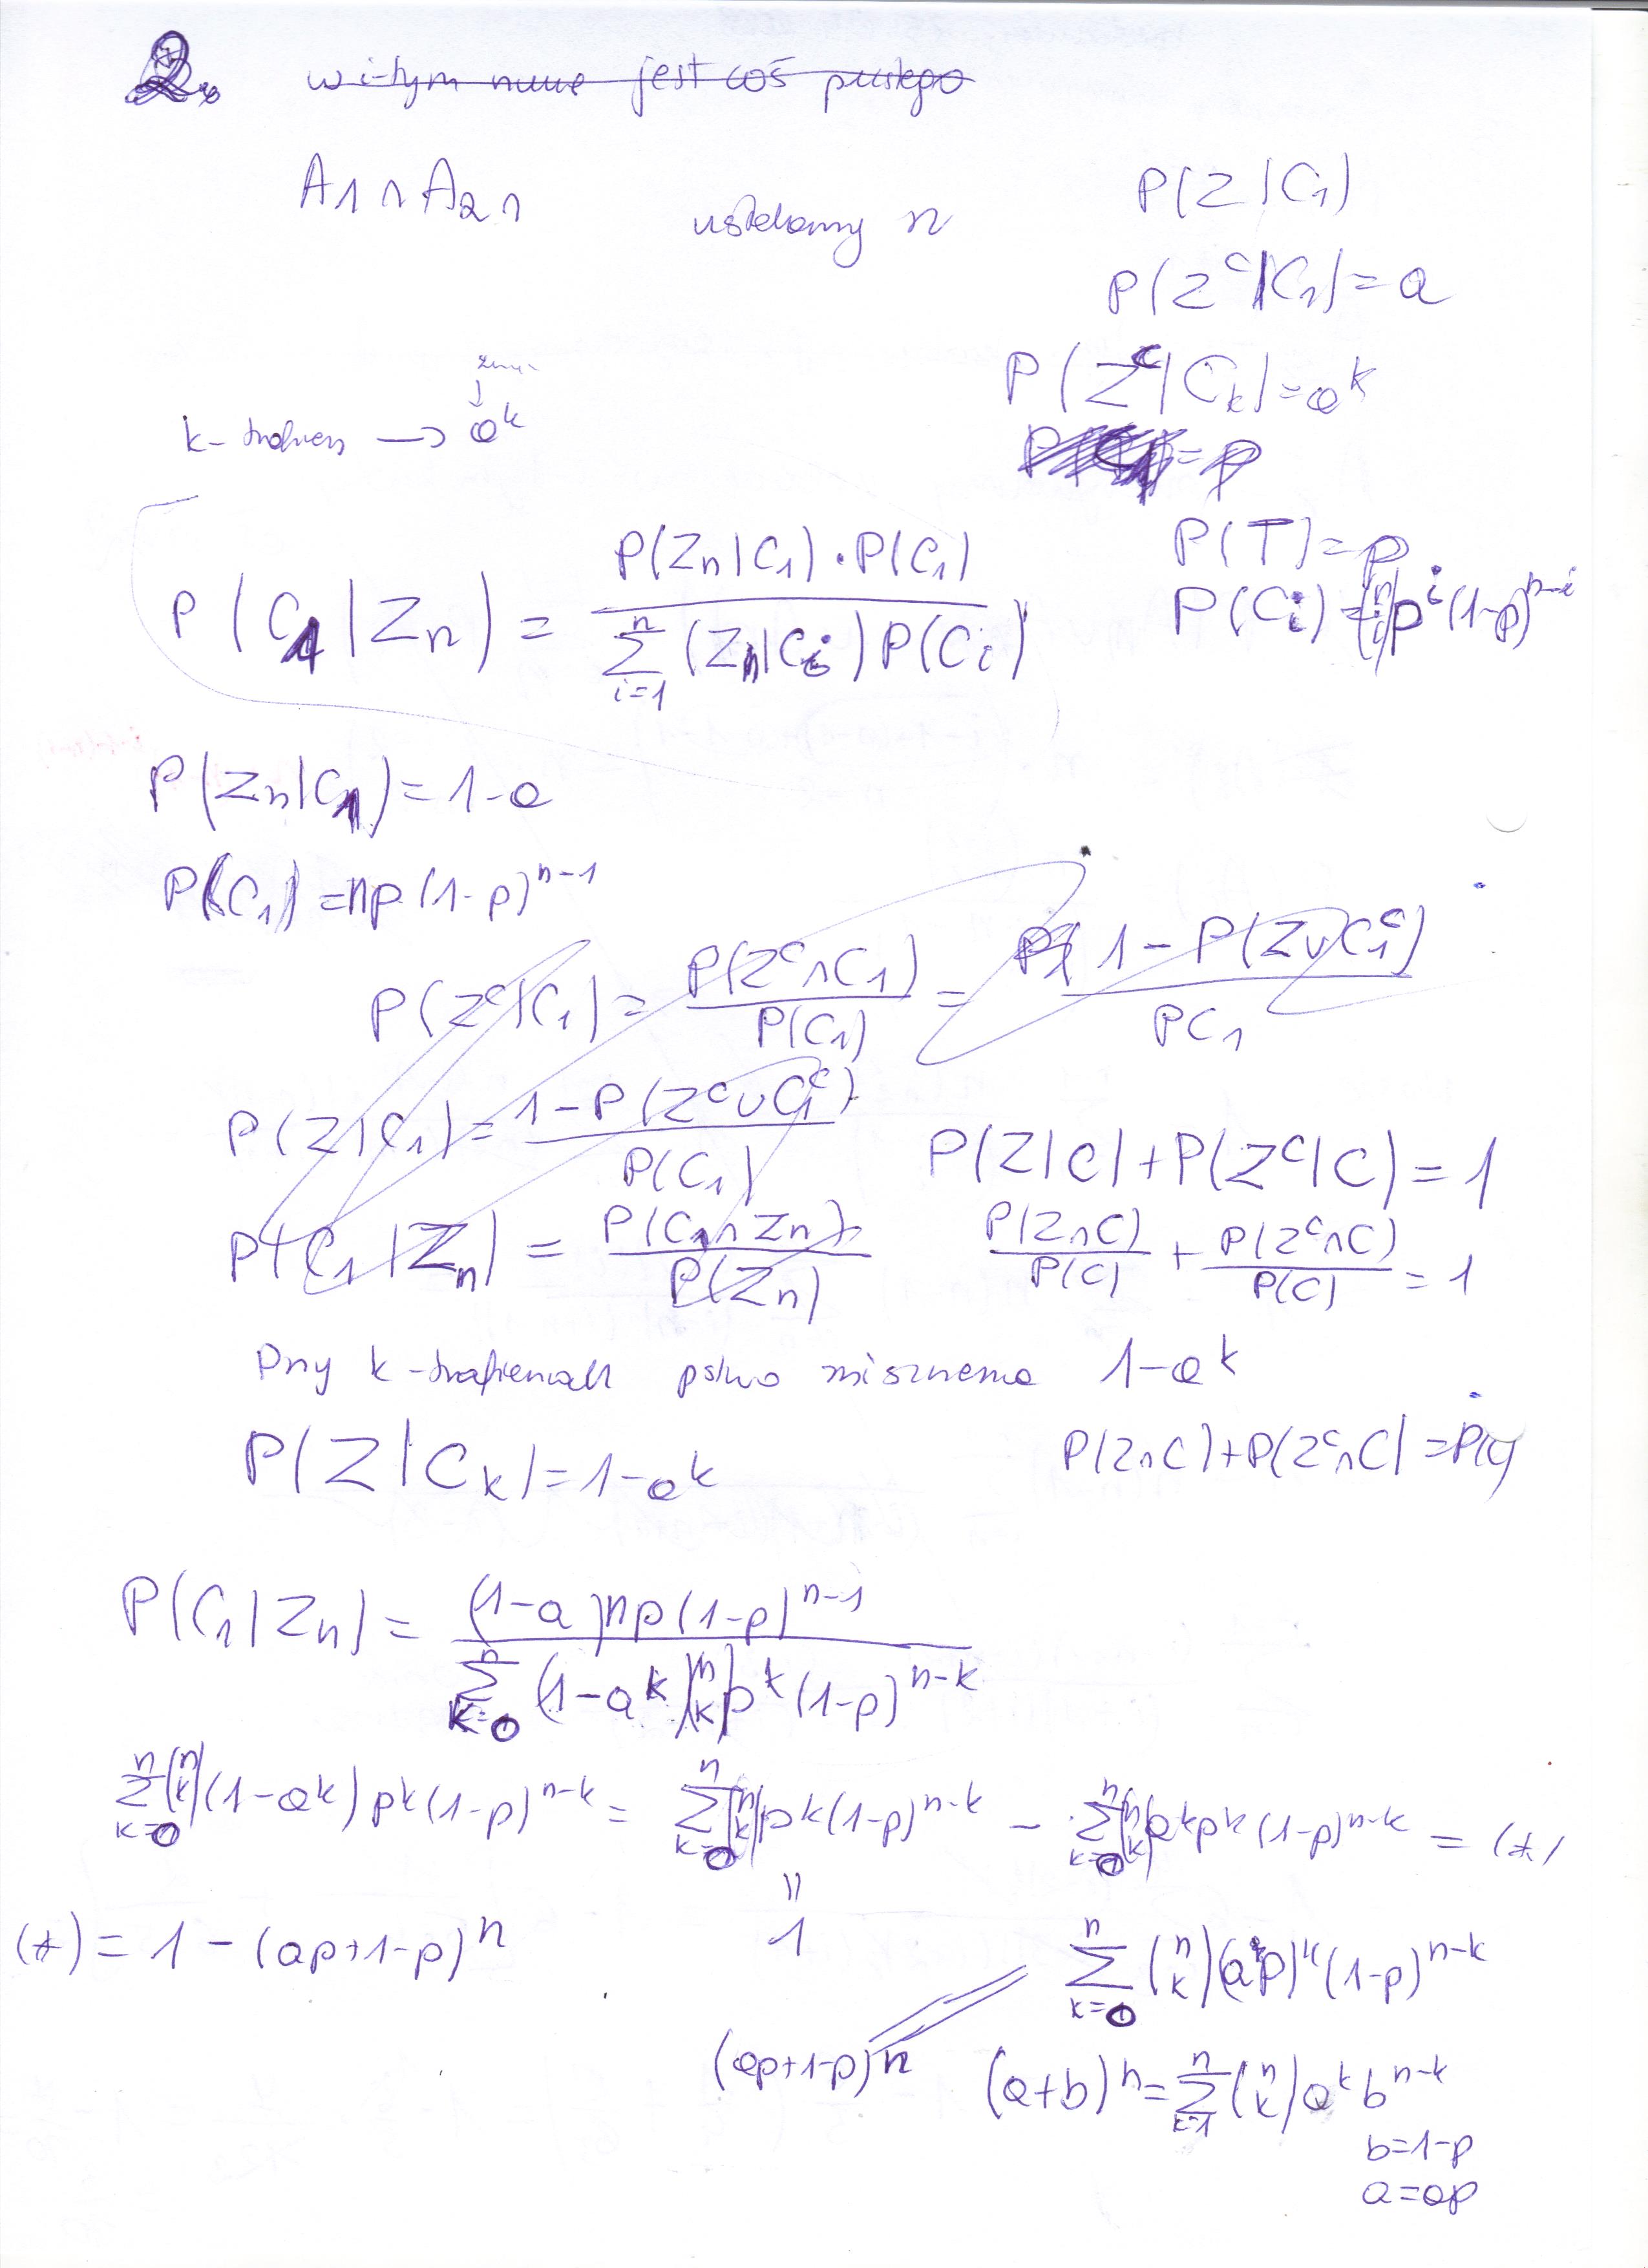 2.
w i-tym jest coś pustego
A₁ ∩ A₂ ∩
ustalamy n
P(Z|C₁)
P(Z^c|C₁) = a
P(Z^c|C_k) = a^k
k- → a^k
= p
P(T) = p
P(C_i) = (n i) p^i (1-p)^{n-i}
P(C₁|Z_n) = P(Z_n|C₁)·P(C₁) / ∑_{i=1}^{n} (Z_n|C_i) P(C_i)
P(Z_n|C₁) = 1-a
P(C₁) = np(1-p)^{n-1}
P(Z^c|C₁) = P(Z^c∩C₁) / P(C₁) = 1-P(Z∪C₁^c) / PC₁
P(Z|C₁) = 1-P(Z^c∪C₁^c) / P(C₁)
P(Z|C)+P(Z^c|C) = 1
P(C₁|Z_n) = P(C₁∩Z_n) / P(Z_n)
P(Z∩C)/P(C) + P(Z^c∩C)/P(C) = 1
Przy k-trafieniach pstwo zniszczenia 1-a^k
P(Z|C_k) = 1-a^k
P(Z∩C)+P(Z^c∩C) = P(C)
P(C₁|Z_n) = (1-a)np(1-p)^{n-1} / ∑_{k=0}^{n} (1-a^k)(n k)p^k(1-p)^{n-k}
∑_{k=0}^{n} (n k)(1-a^k)p^k(1-p)^{n-k} = ∑_{k=0}^{n} (n k)p^k(1-p)^{n-k} - ∑_{k=0}^{n} (n k)a^k p^k(1-p)^{n-k} = (*)
=
1
(*) = 1-(ap+1-p)^n
∑_{k=0}^{n} (n k)(ap)^k(1-p)^{n-k}
(ap+1-p)^n
(a+b)^n = ∑_{k=1}^{n} (n k)a^k b^{n-k}
b=1-p
a=ap